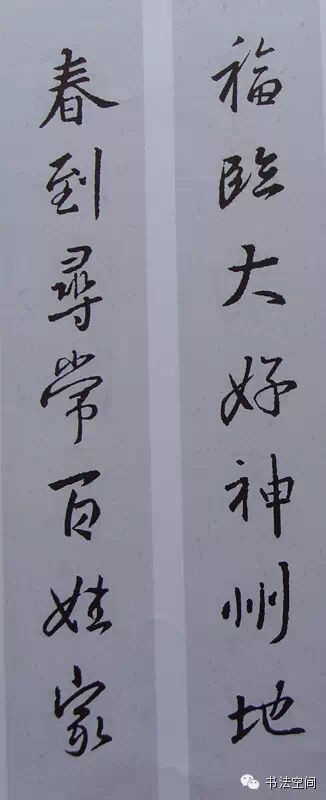 福临大好神州地
春到尋常百姓家
书法空间